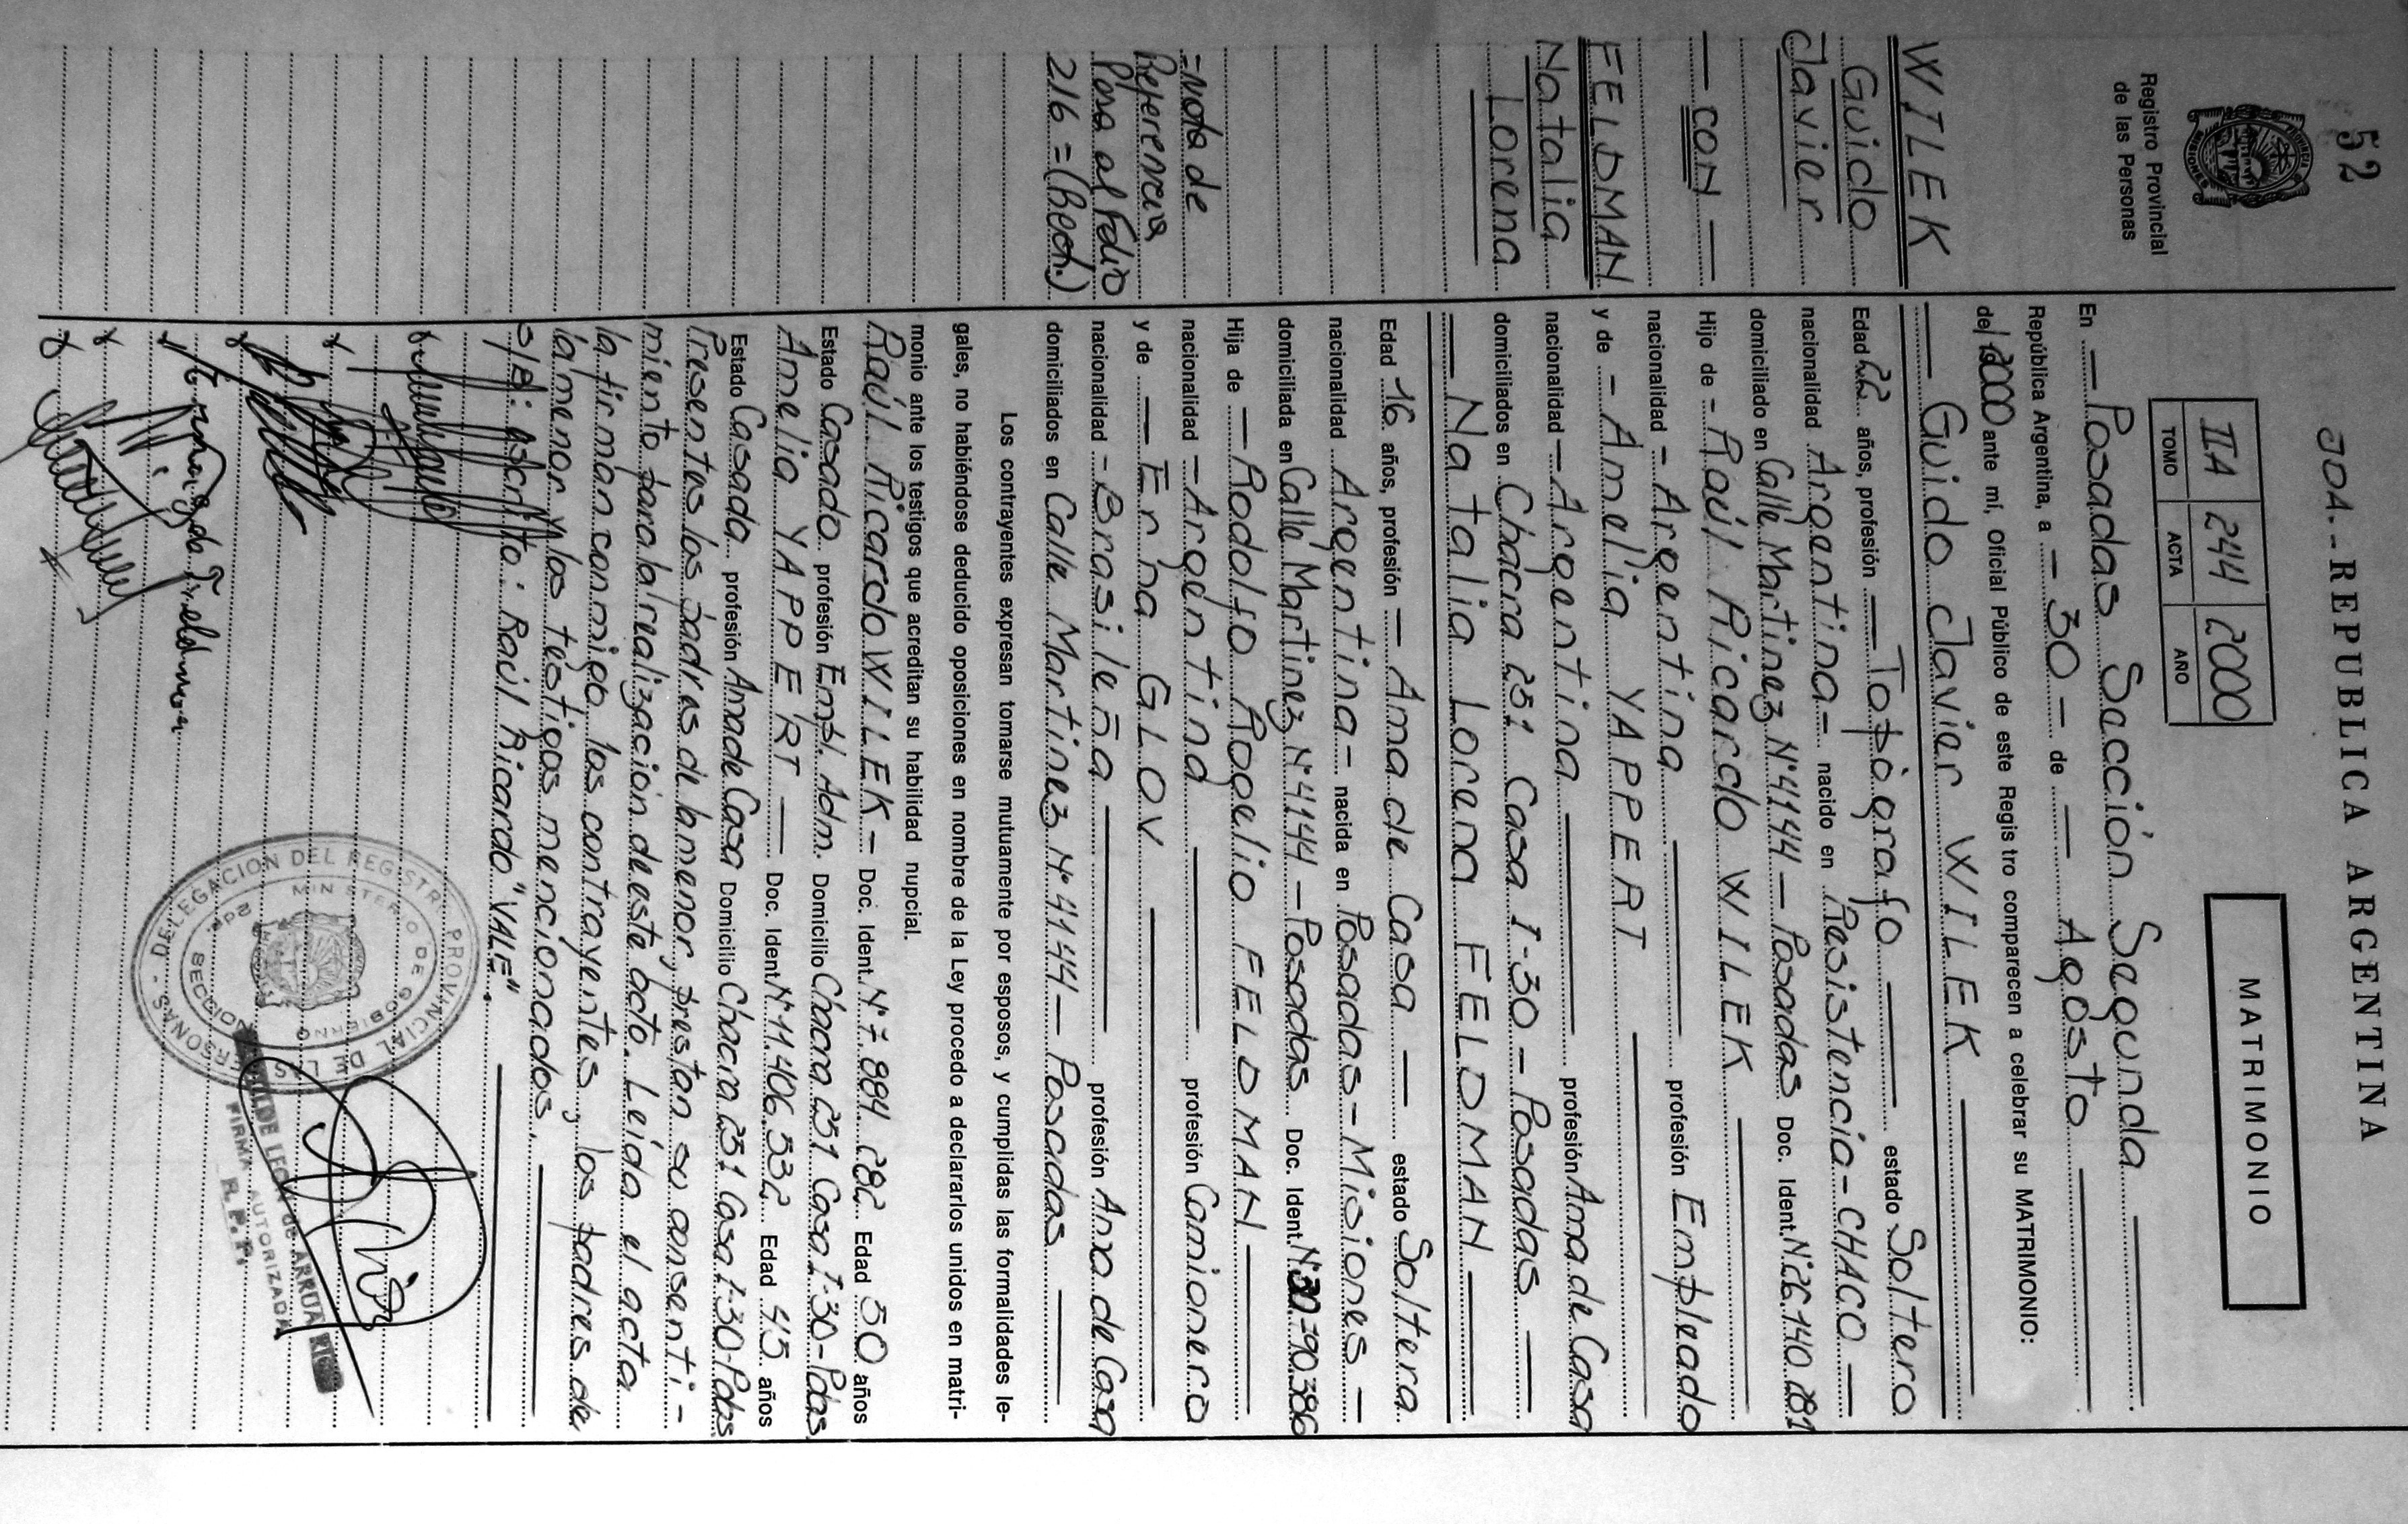 52
JDA.-REPUBLICA ARGENTINA
Registro Provincial
de las Personas
IIA 244 2000
TOMO ACTA AÑO
MATRIMONIO
WILEK
Guido
Javier
— CON —
FELDMAN
Natalia
Lorena
=Nota de
Referencia
Pasa al Folio
216=(Bech.)
En — Posadas Sección Segunda —
República Argentina, a — 30 — de — Agosto —
del 2000 ante mí, Oficial Público de este Regis tro comparecen a celebrar su MATRIMONIO:
— Guido Javier WILEK —
Edad 22 años, profesión — Topógrafo — estado Soltero
nacionalidad Argentina — nacido en Resistencia - CHACO —
domiciliado en Calle Martinez Nº 4144 — Posadas Doc. Ident. Nº 26.140.281
Hijo de — Raúl Ricardo WILEK —
nacionalidad — Argentina — profesión Empleado
y de — Amelia YAPPERT —
nacionalidad — Argentina — profesión Ama de Casa
domiciliados en Chacra 251 Casa I-30 — Posadas —
— Natalia Lorena FELDMAN —
Edad 16 años, profesión — Ama de Casa — estado Soltera
nacionalidad Argentina — nacida en Posadas — Misiones —
domiciliada en Calle Martinez Nº 4144 — Posadas Doc. Ident. Nº 30.790.386
Hija de — Rodolfo Rogelio FELDMAN —
nacionalidad — Argentina — profesión Camionero
y de — Erna GLOV —
nacionalidad — Brasileña — profesión Ama de Casa
domiciliados en Calle Martinez Nº 4144 — Posadas —
Los contrayentes expresan tomarse mutuamente por esposos, y cumplidas las formalidades le-
gales, no habiéndose deducido oposiciones en nombre de la Ley procedo a declararlos unidos en matri-
monio ante los testigos que acreditan su habilidad nupcial.
Raúl Ricardo WILEK — Doc. Ident. Nº 7.884.282 Edad 50 años
Estado Casado profesión Empl. Adm. Domicilio Chacra 251 Casa I-30-Pdas
Amelia YAPPERT — Doc. Ident. Nº 11.406.532 Edad 45 años
Estado Casada profesión Ama de Casa Domicilio Chacra 251 Casa I-30-Pdas
Presentes los padres de la menor, prestan su consenti-
miento para la realización de este acto. Leída el acta
la firman conmigo los contrayentes, los padres de
la menor y los testigos mencionados. —
S/R: escrito: Raúl Ricardo "VALE". —
DELEGACION DEL REGISTRO PROVINCIAL DE LAS PERSONAS
MINISTERIO DE GOBIERNO
2da. SECCION
de ARRUA
FIRMA AUTORIZADA
R. P. P.